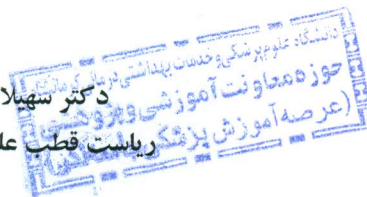 دانشگاه علوم پزشکی و خدمات بهداشتی درمانی کرمانشاه
حوزه معاونت آموزشی و پژوهشی
(عرصه آموزش پزشکی
دکتر سهیلا
ریاست قطب عل